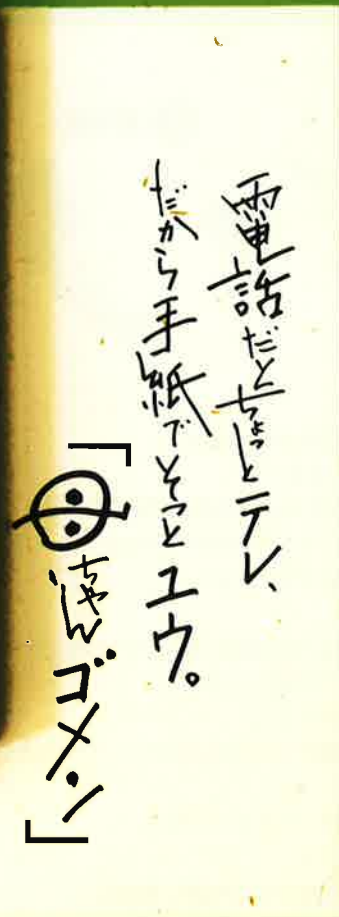 電話だとちょっとテレ、
だから手紙でそっとユウ。
「母ちゃんゴメン」